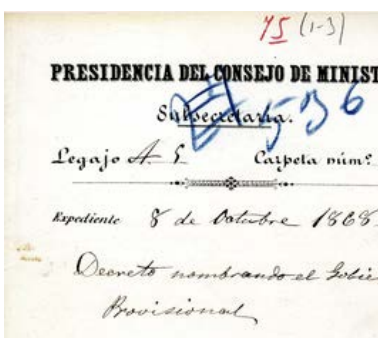 75 (1-3)
PRESIDENCIA DEL CONSEJO DE MINIST
536
Subsecretaría.
Legajo A 5 Carpeta núm.º
Expediente 8 de Octubre 1868.
Decreto nombrando el Gobie
Provisional